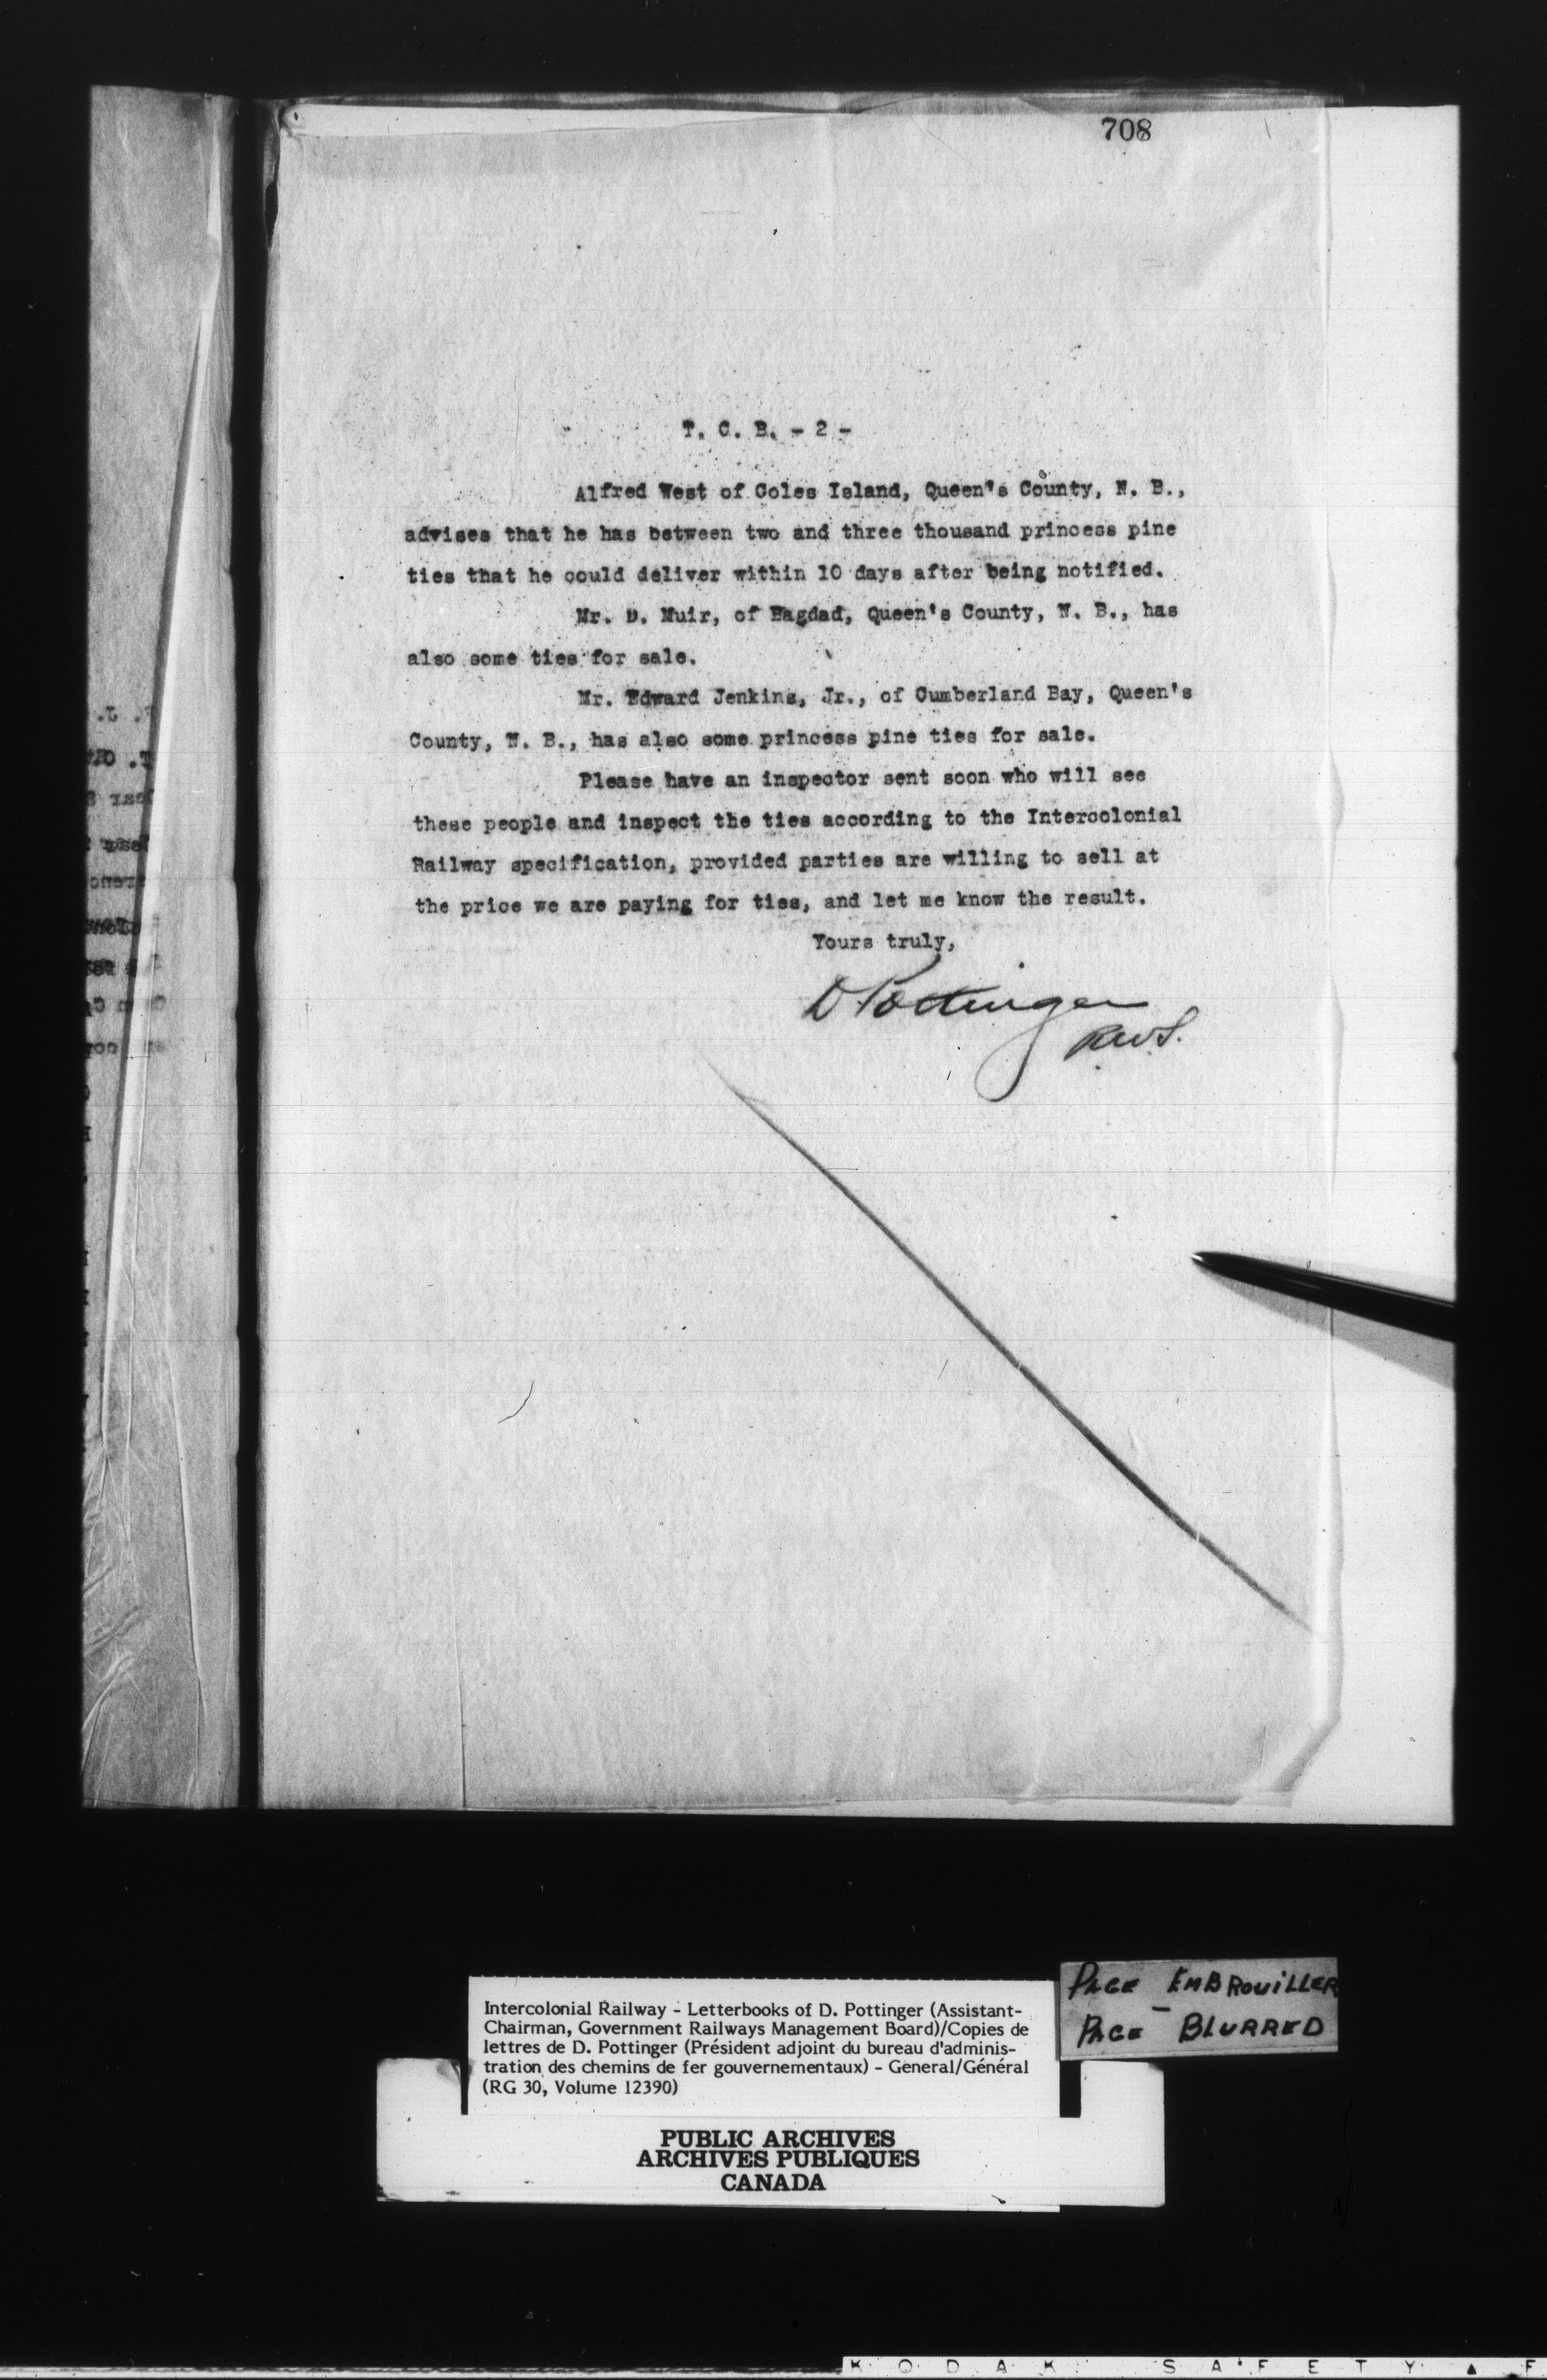 708
T. C. B. - 2 -
Alfred West of Coles Island, Queen's County, N. B.,
advises that he has between two and three thousand princess pine
ties that he could deliver within 10 days after being notified.
Mr. D. Muir, of Bagdad, Queen's County, N. B., has
also some ties for sale.
Mr. Edward Jenkins, Jr., of Cumberland Bay, Queen's
County, N. B., has also some princess pine ties for sale.
Please have an inspector sent soon who will see
these people and inspect the ties according to the Intercolonial
Railway specification, provided parties are willing to sell at
the price we are paying for ties, and let me know the result.
Yours truly,
D Pottinger
RWS.
PAGE EMBROUILLER
-
PAGE BLURRED
Intercolonial Railway - Letterbooks of D. Pottinger (Assistant-
Chairman, Government Railways Management Board)/Copies de
lettres de D. Pottinger (Président adjoint du bureau d'adminis-
tration des chemins de fer gouvernementaux) - General/Général
(RG 30, Volume 12390)
PUBLIC ARCHIVES
ARCHIVES PUBLIQUES
CANADA
KODAK SAFETY ▲ F